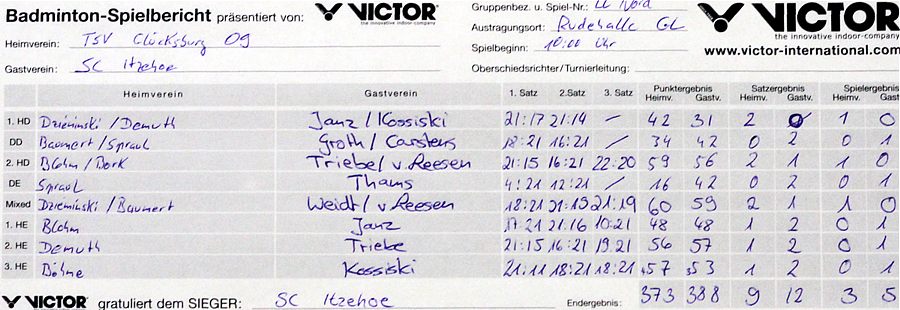 Badminton-Spielbericht präsentiert von: VICTOR the innovative indoor-company
Gruppenbez. u. Spiel-Nr.: LL Nord
VICTOR the innovative indoor-company
Heimverein: TSV Glücksburg 09
Austragungsort: Rudehalle GL
Spielbeginn: 10:00 Uhr
www.victor-international.com
Gastverein: SC Itzehoe
Oberschiedsrichter/Turnierleitung:
Heimverein Gastverein 1. Satz 2.Satz 3. Satz Punktergebnis Heimv. Gastv. Satzergebnis Heimv. Gastv. Spielergebnis Heimv. Gastv.
1. HD Dzieminski/Demuth Janz/Kossiski 21:17 21:14 / 42 31 2 0 1 0
DD Baumert/Spraul Groth/Carstens 18:21 16:21 / 34 42 0 2 0 1
2. HD Blohm/Bork Triebel/v. Reesen 21:15 16:21 22:20 59 56 2 1 1 0
DE Spraul Thams 4:21 12:21 / 16 42 0 2 0 1
Mixed Dzieminski/Baumert Weidt/v. Reesen 18:21 21:19 21:19 60 59 2 1 1 0
1. HE Blohm Janz 17:21 21:16 10:21 48 48 1 2 0 1
2. HE Demuth Triebe 21:15 16:21 19:21 56 57 1 2 0 1
3. HE Böhme Kossiski 21:11 18:21 18:21 57 53 1 2 0 1
VICTOR gratuliert dem SIEGER: SC Itzehoe Endergebnis: 373 388 9 12 3 5